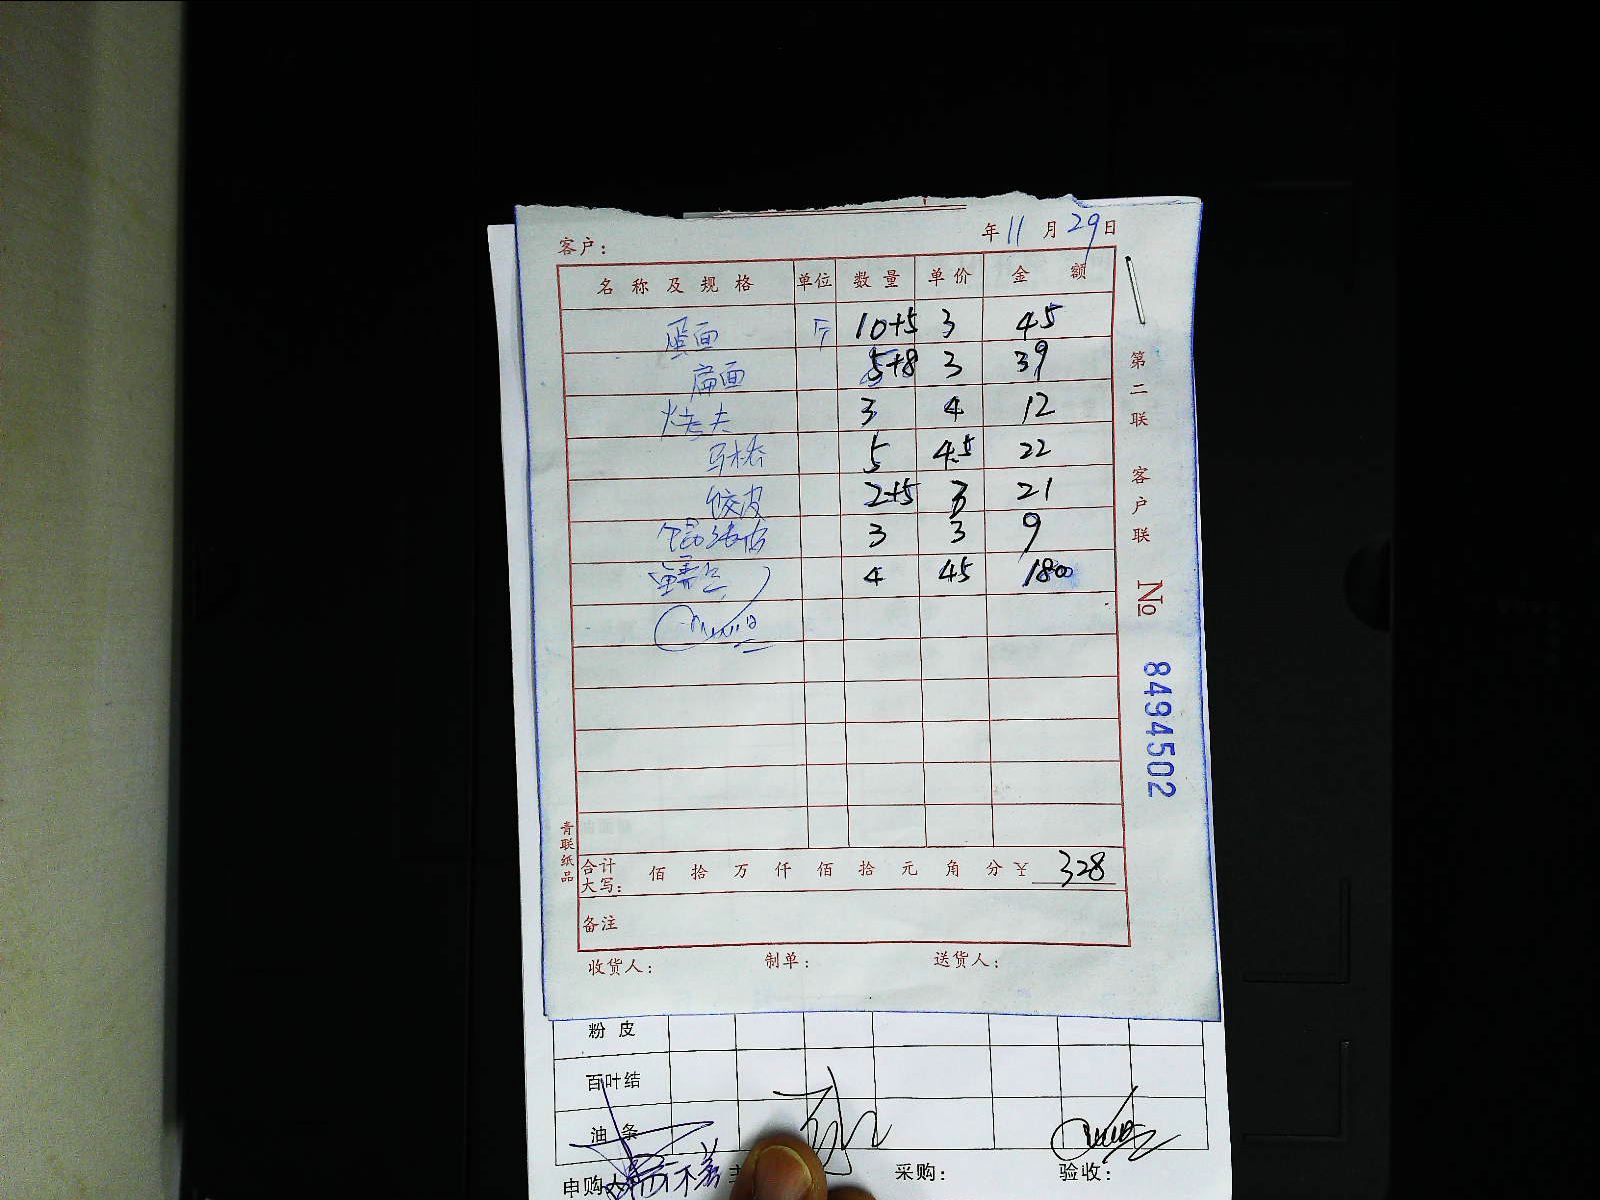 年 11 月 29 日
客户：
名称及规格 单位 数量 单价 金额
蛋面 斤 10+5 3 45
扁面 5+8 3 39
烤夫 3 4 12
马桥 5 4.5 22
饺皮 2+5 3 21
3 3 9
4 45 180
合计大写： 佰 拾 万 仟 佰 拾 元 角 分 ¥ 328
备注
收货人： 制单： 送货人：
青联纸品
第二联 客户联
№ 8494502
粉皮
百叶结
油条
申购 采购： 验收：